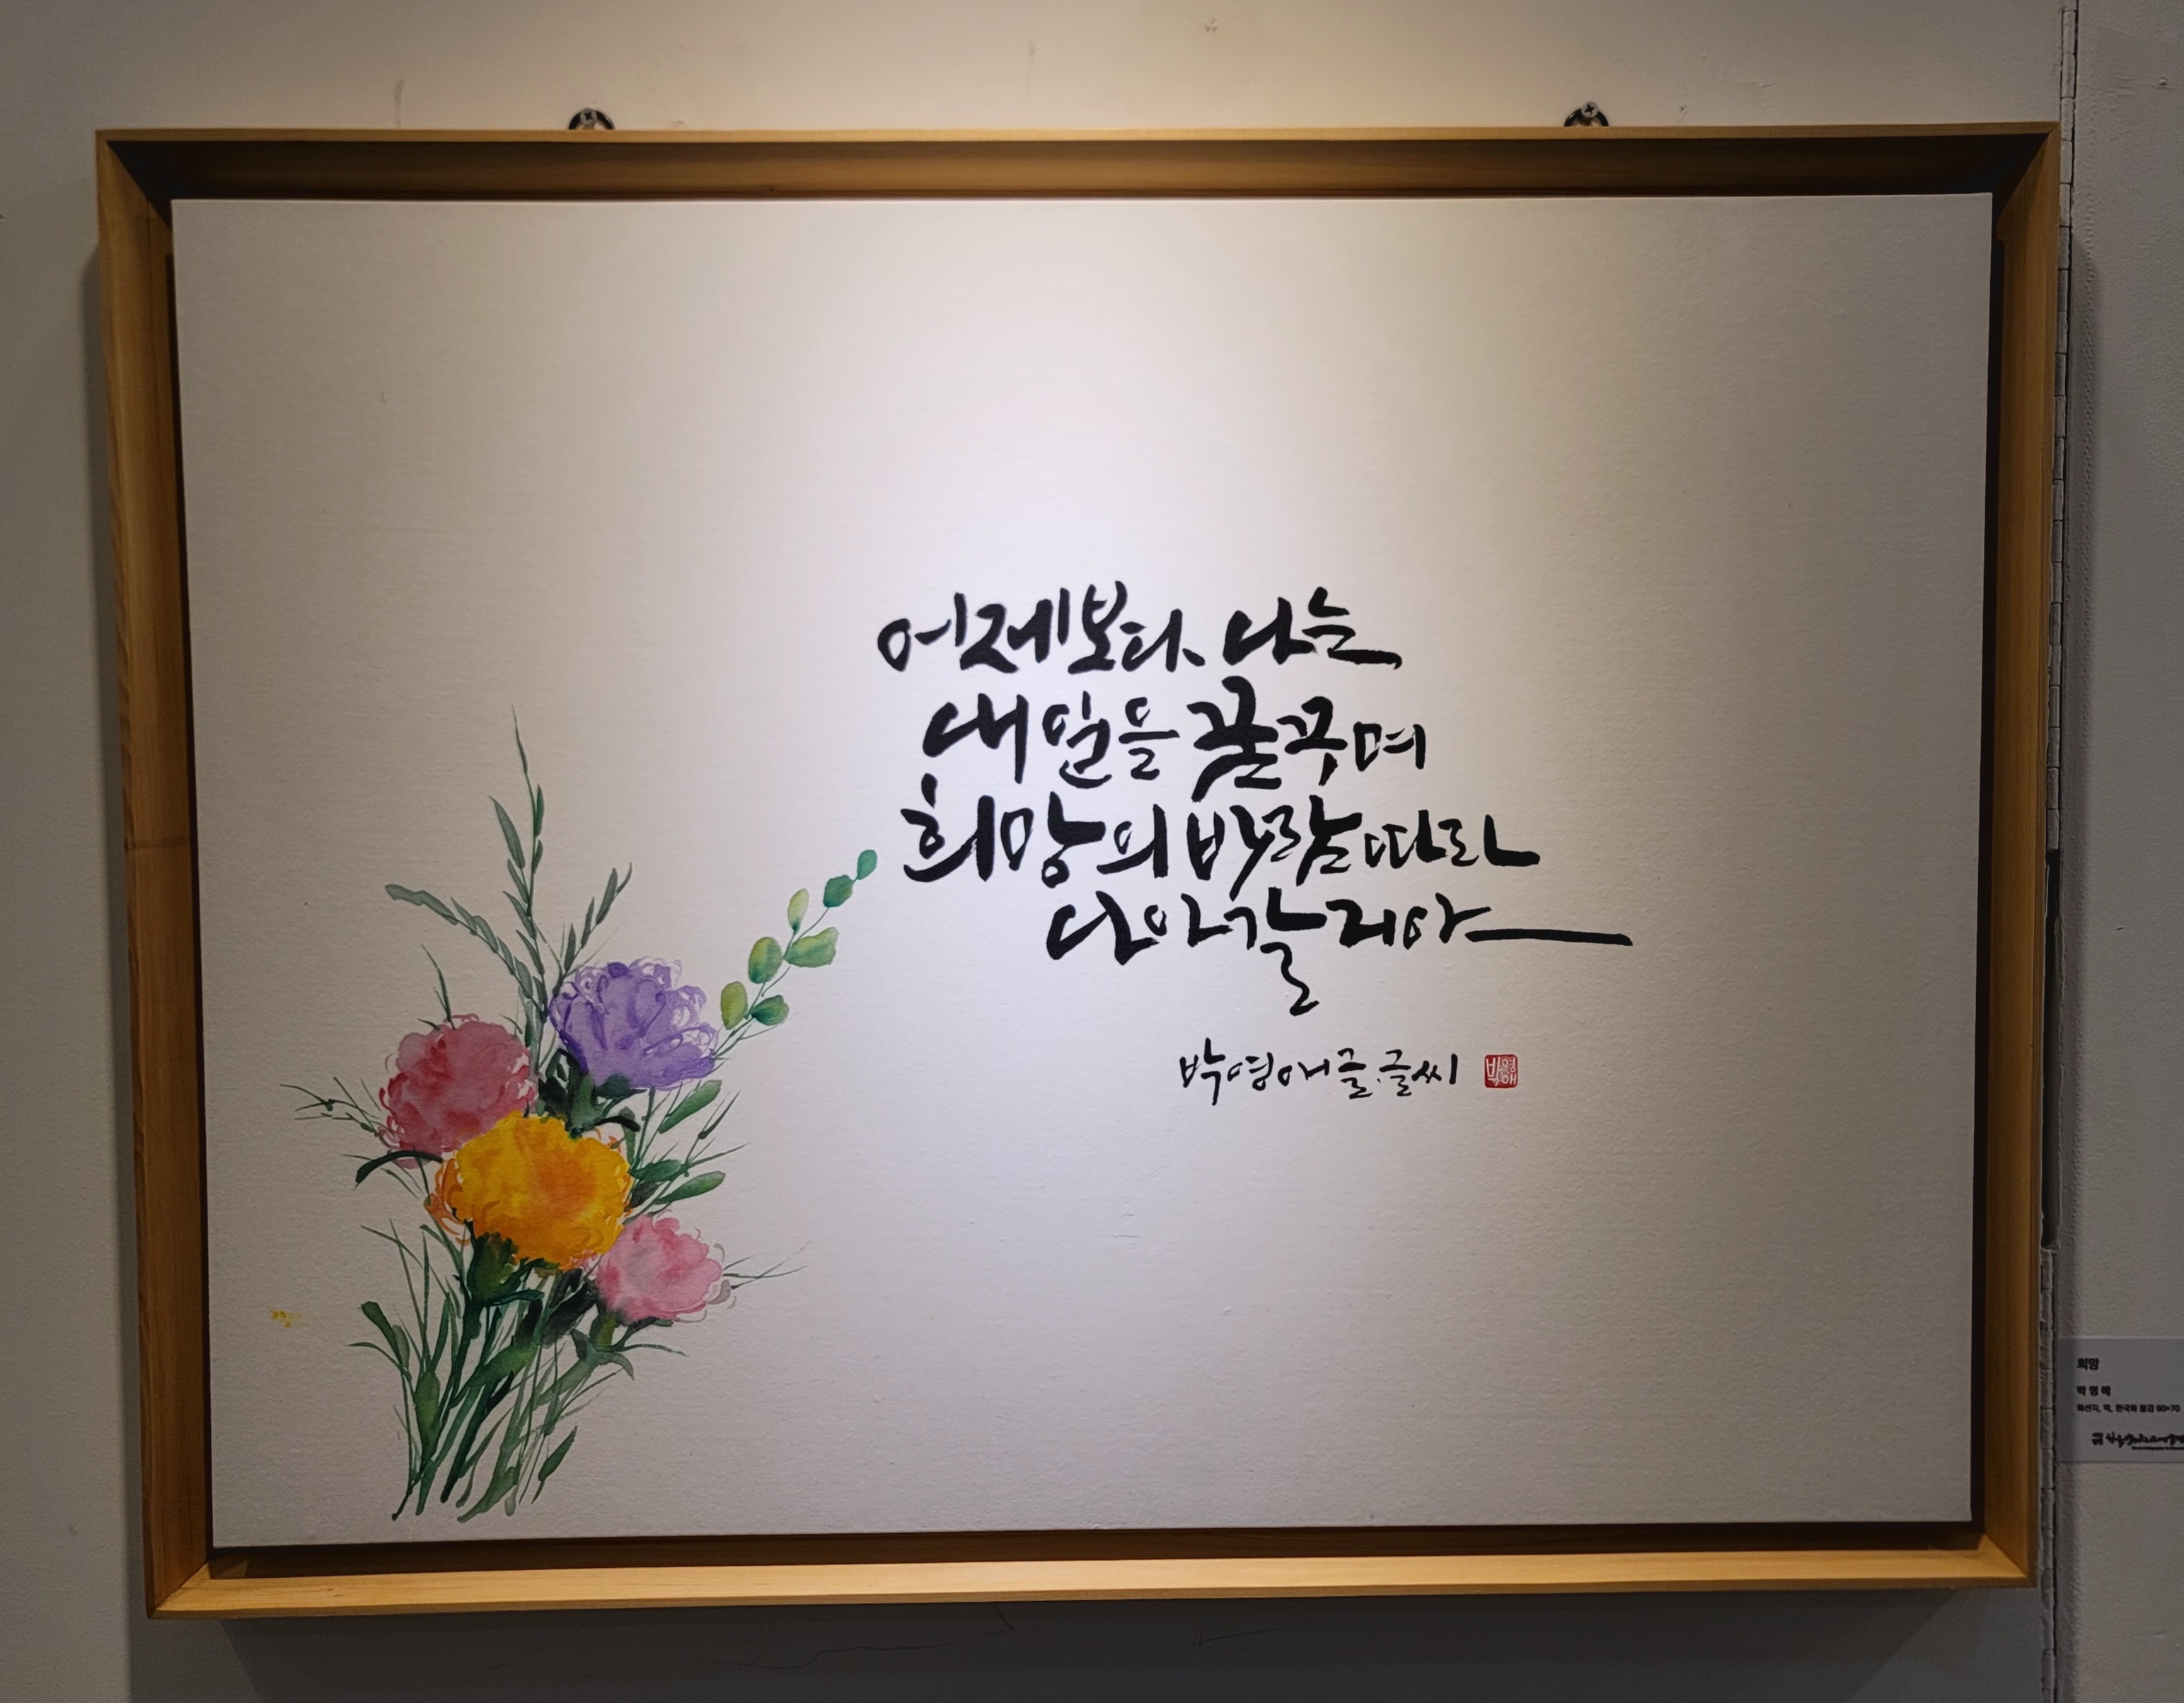 어제보다 나는
내일을 꿈꾸며
희망의 바람따라
나아갈리아
박영애 글.글씨
박영애
희망
박영애
화선지, 먹, 한국화 물감 90×70